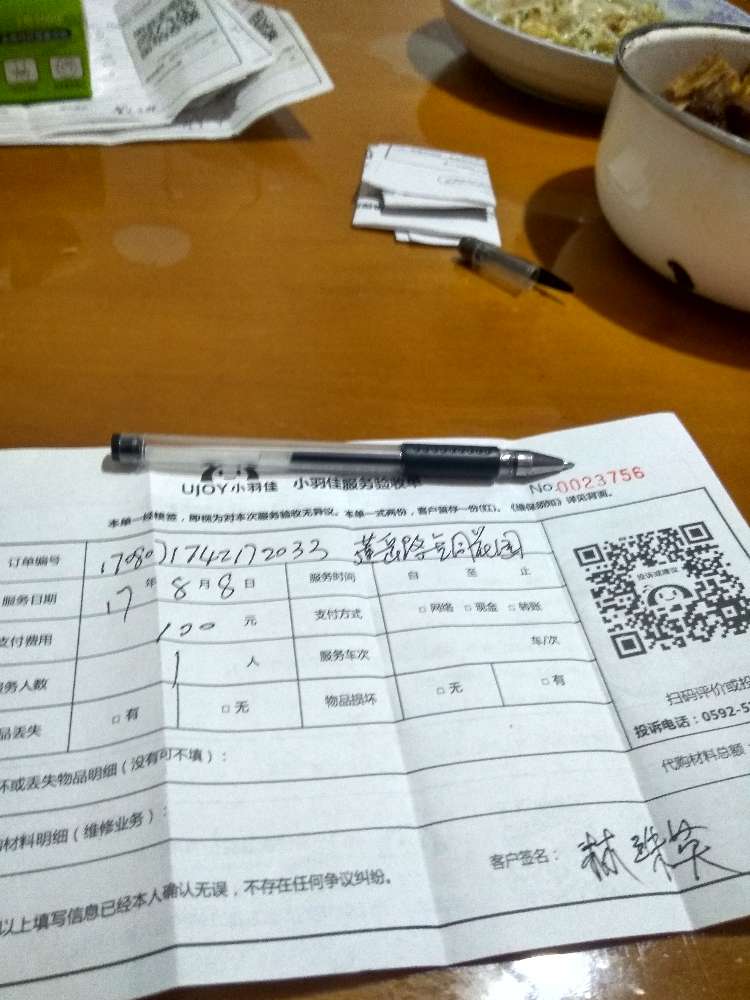 UJOY小羽佳 小羽佳服务验收单
No.0023756
本单一经核签，即视为对本次服务验收无异议。本单一式两份，客户留存一份(红)。《维保须知》详见背面。
订单编号 1708071742172033
服务日期 17 年 8 月 8 日 服务时间 自 至 止
支付费用 100 元 支付方式 □ 网络 □ 现金 □ 转账
服务人数 1 人 服务车次 车/次
品丢失 □ 有 □ 无 物品损坏 □ 无 □ 有
投诉或建议
扫码评价或投
投诉电话：0592-5
坏或丢失物品明细（没有可不填）：
代购材料总额
材料明细（维修业务）：
客户签名： 林
以上填写信息已经本人确认无误，不存在任何争议纠纷。